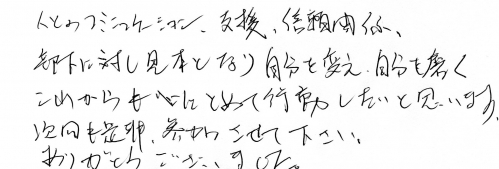 人とのコミニュケーション、支援、信頼関係、
部下に対し見本となり自分を変え、自分を磨く
これからも心にとめて行動したいと思います。
次回も是非、参加させて下さい。
ありがとうございました。